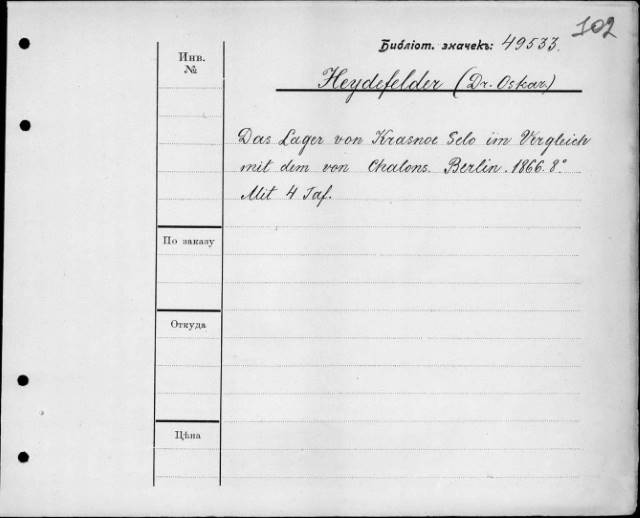 102
Библіот. значекъ: 49533.
Инв.
№
Heydefelder (Dr. Oskar)
Das Lager von Krasnoe Selo im Vergleich
mit dem von Chalons. Berlin. 1866. 8°
Mit 4 Taf.
По заказу
Откуда
Цѣна